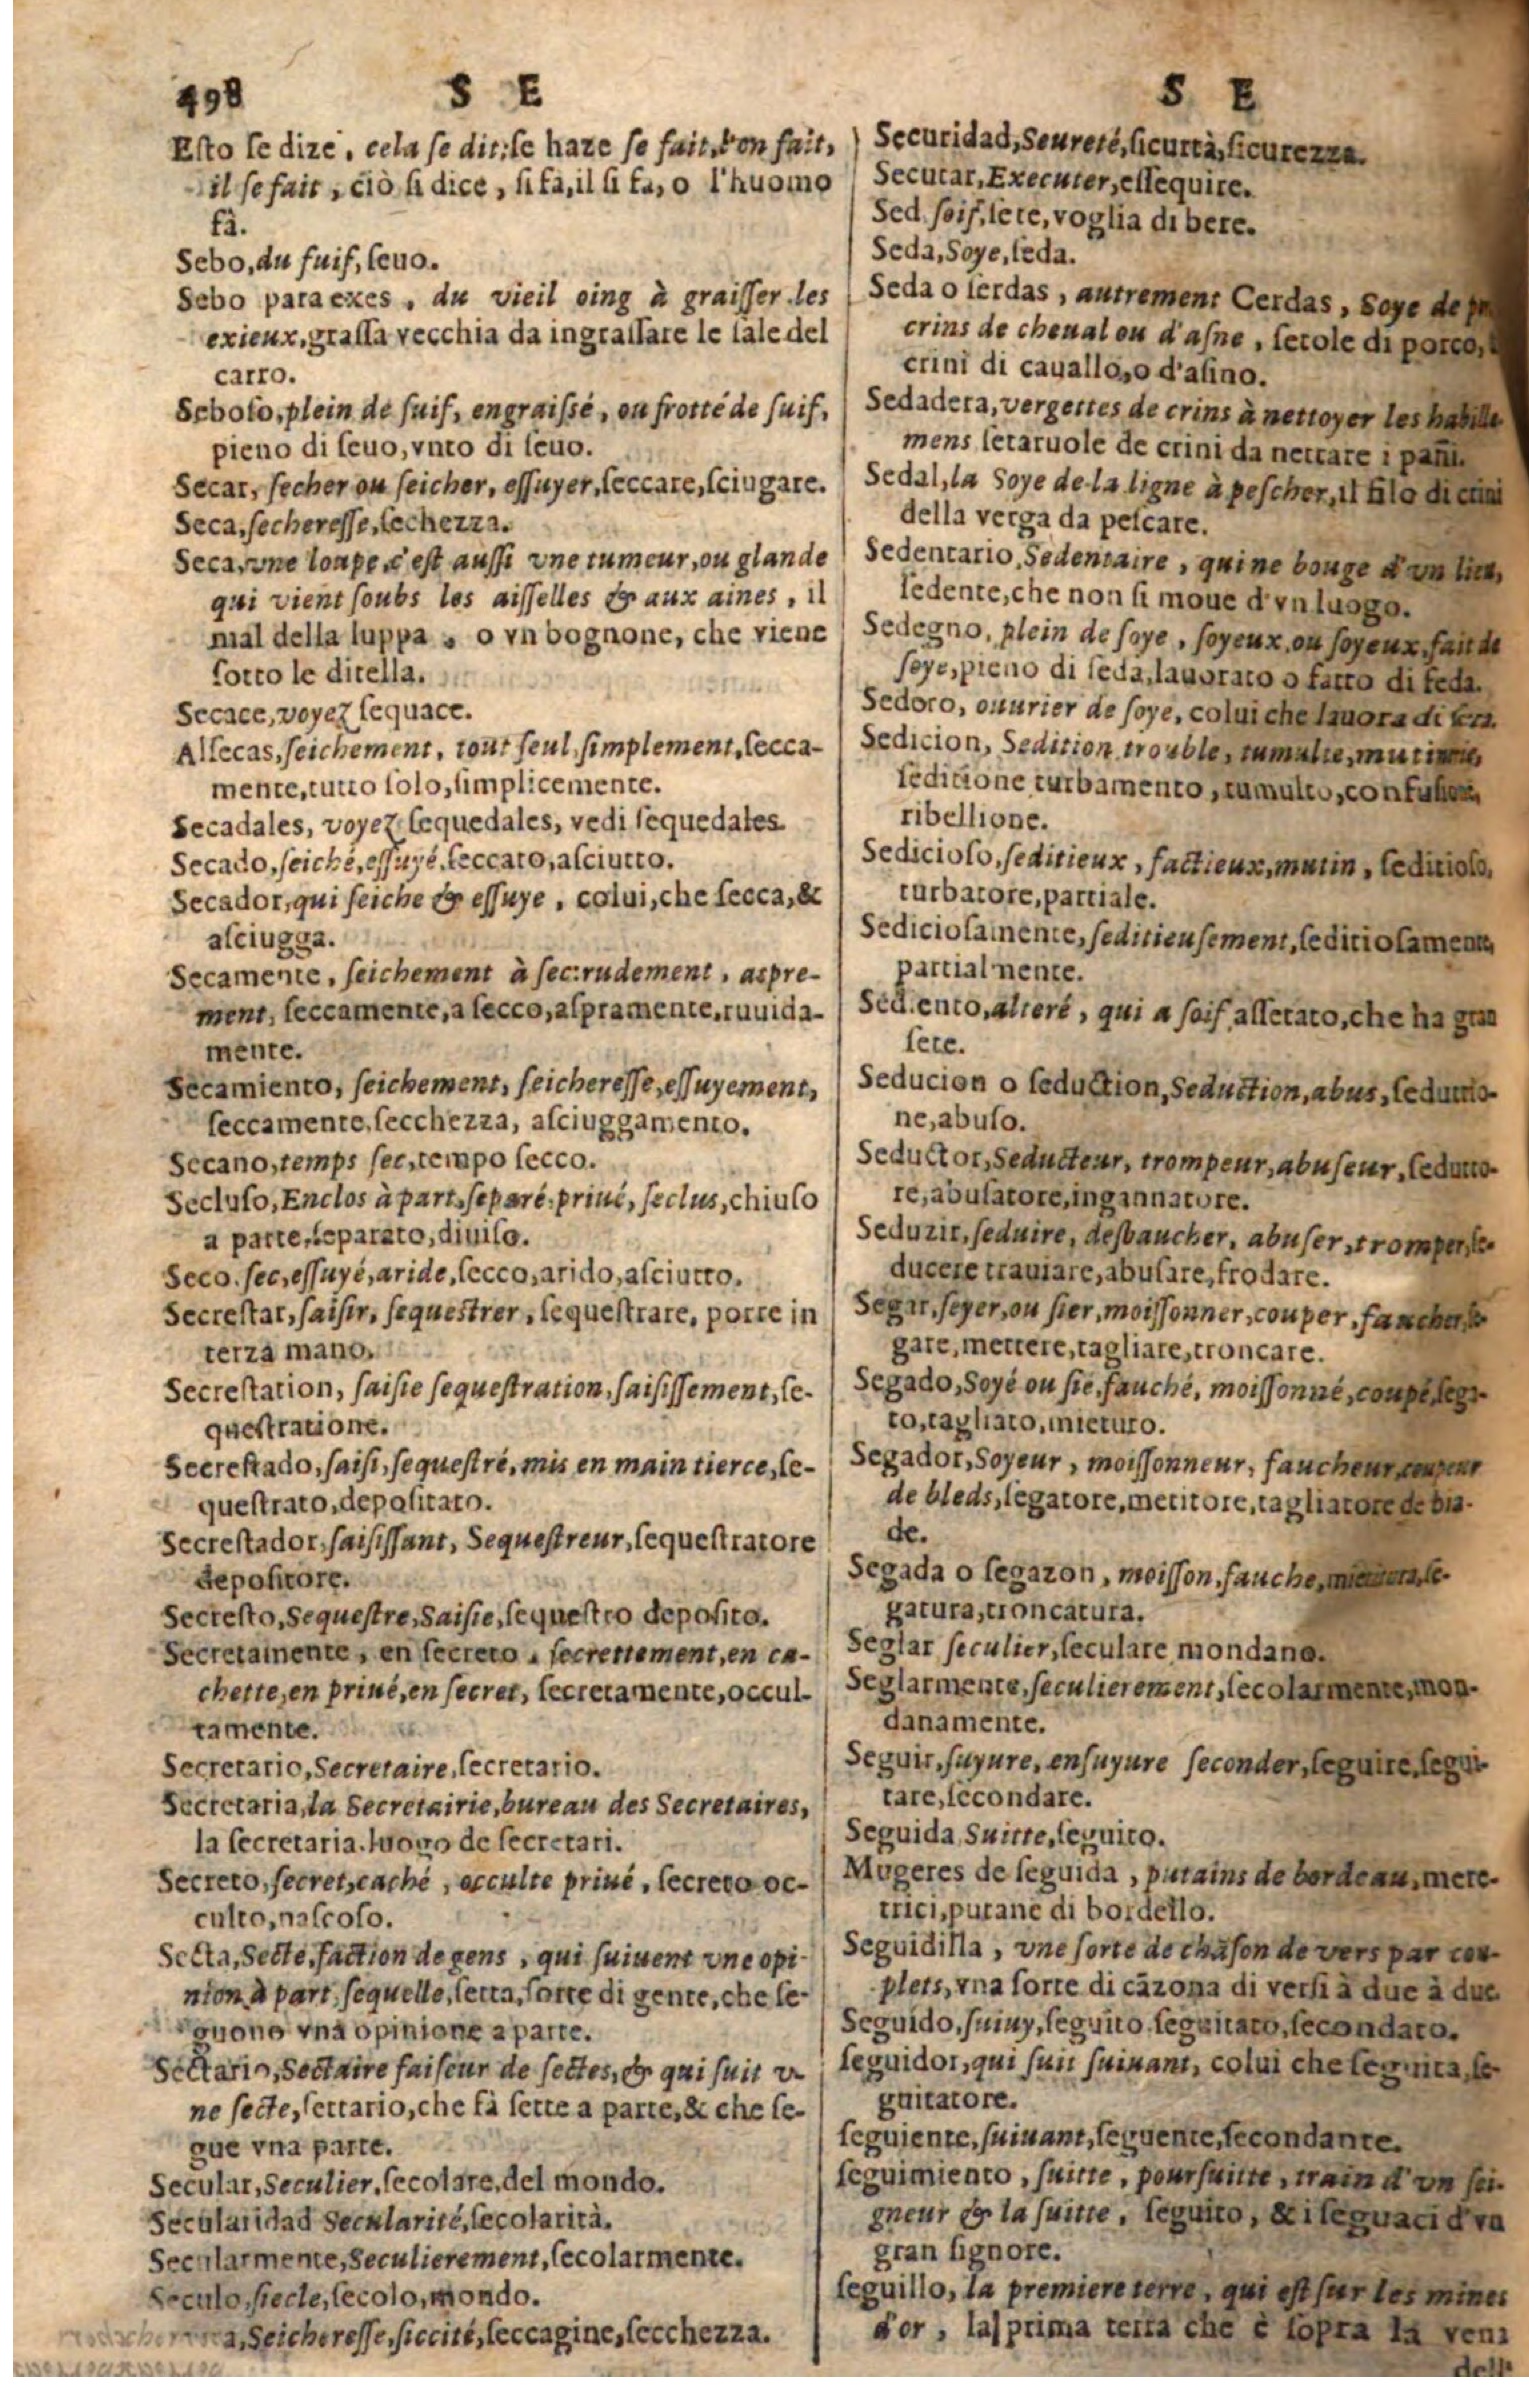 498 S E
Eſto ſe dize, cela ſe dit: ſe haze ſe fait, l'on fait,
il ſe fait, ciò ſi dice, ſi fà, il ſi fa, o l'huomo
fà.
Sebo, du ſuif, ſeuo.
Sebo para exes, du vieil oing à graiſſer les
exieux, graſſa vecchia da ingraſſare le ſale del
carro.
Seboſo, plein de ſuif, engraiſſé, ou frotté de ſuif,
pieno di ſeuo, vnto di ſeuo.
Secar, ſecher ou ſeicher, eſſuyer, ſeccare, ſciugare.
Seca, ſechereſſe, ſechezza.
Seca, vne loupe, c'eſt auſſi vne tumeur, ou glande
qui vient ſoubs les aiſſelles & aux aines, il
mal della luppa, o vn bognone, che viene
ſotto le ditella.
Secace, voyez ſequace.
Alſecas, ſeichement, tout ſeul, ſimplement, ſecca-
mente, tutto ſolo, ſimplicemente.
Secadales, voyez ſequedales, vedi ſequedales.
Secado, ſeiché, eſſuyé, ſeccato, aſciutto.
Secador, qui ſeiche & eſſuye, colui, che ſecca, &
aſciugga.
Secamente, ſeichement à ſec: rudement, aspre-
ment, ſeccamente, a ſecco, aſpramente, ruuida-
mente.
Secamiento, ſeichement, ſeichereſſe, eſſuyement,
ſeccamente, ſecchezza, aſciuggamento.
Secano, temps ſec, tempo ſecco.
Secluſo, Enclos à part, ſeparé, priué, ſeclus, chiuſo
a parte, ſeparato, diuiſo.
Seco, ſec, eſſuyé, aride, ſecco, arido, aſciutto.
Secreſtar, ſaiſir, ſequeſtrer, ſequeſtrare, porre in
terza mano.
Secreſtation, ſaiſie ſequeſtration, ſaiſiſſement, ſe-
queſtratione.
Secreſtado, ſaiſi, ſequeſtré, mis en main tierce, ſe-
queſtrato, depoſitato.
Secreſtador, ſaiſiſſant, Sequeſtreur, ſequeſtratore
depoſitore.
Secreſto, Sequeſtre, Saiſie, ſequeſtro depoſito.
Secretamente, en ſecreto, ſecrettement, en ca-
chette, en priué, en ſecret, ſecretamente, occul-
tamente.
Secretario, Secretaire, ſecretario.
Secretaria, la Secretairie, bureau des Secretaires,
la ſecretaria. luogo de ſecretari.
Secreto, ſecret, caché, occulte priué, ſecreto oc-
culto, naſcoſo.
Secta, Secte, faction de gens, qui ſuiuent vne opi-
nion à part, ſequelle, ſetta, ſorte di gente, che ſe-
guono vna opinione a parte.
Sectario, Sectaire faiſeur de ſectes, & qui ſuit v-
ne ſecte, ſettario, che fà ſette a parte, & che ſe-
gue vna parte.
Secular, Seculier, ſecolare, del mondo.
Secularidad Secularité, ſecolarità.
Secularmente, Seculierement, ſecolarmente.
Seculo, ſiecle, ſecolo, mondo.
Seichereſſe, ſiccité, ſeccagine, ſecchezza.
S E
Securidad, Seureté, ſicurtà, ſicurezza.
Secutar, Executer, eſſequire.
Sed, ſoif, ſete, voglia di bere.
Seda, Soye, ſeda.
Seda o ſerdas, autrement Cerdas, Soye de
crins de cheual ou d'aſne, ſetole di porco,
crini di cauallo, o d'aſino.
Sedadera, vergettes de crins à nettoyer les habille-
mens ſetaruole de crini da nettare i pañi.
Sedal, la Soye de la ligne à peſcher, il filo di crini
della verga da peſcare.
Sedentario, Sedentaire, qui ne bouge d'vn lieu,
ſedente, che non ſi moue d'vn luogo.
Sedegno, plein de ſoye, ſoyeux, ou ſoyeux, fait de
ſoye, pieno di ſeda, lauorato o fatto di ſeda.
Sedoro, ouurier de ſoye, colui che lauora di
Sedicion, Sedition, trouble, tumulte, mutinerie,
ſeditione turbamento, tumulto, confuſione,
ribellione.
Sedicioſo, ſeditieux, factieux, mutin, ſeditioſo,
turbatore, partiale.
Sedicioſamente, ſeditieuſement, ſeditioſamente,
partialmente.
Sediento, alteré, qui a ſoif, aſſetato, che ha gran
ſete.
Seducion o ſeduction, Seduction, abus, ſeduttio-
ne, abuſo.
Seductor, Seducteur, trompeur, abuſeur, ſedutto-
re, abuſatore, ingannatore.
Seduzir, ſeduire, desbaucher, abuſer, tromper, ſe-
ducere trauiare, abuſare, frodare.
Segar, ſeyer, ou ſier, moiſſonner, couper, faucher, ſe-
gare, mettere, tagliare, troncare.
Segado, Soyé ou ſié, fauché, moiſſonné, coupé, ſega-
to, tagliato, mieturo.
Segador, Soyeur, moiſſonneur, faucheur, coupeur
de bleds, ſegatore, metitore, tagliatore de bia-
de.
Segada o ſegazon, moiſſon, fauche, mietitura, ſe-
gatura, troncatura.
Seglar ſeculier, ſeculare mondano.
Seglarmente, ſeculierement, ſecolarmente, mon-
danamente.
Seguir, ſuyure, enſuyure ſeconder, ſeguire, ſegui-
tare, ſecondare.
Seguida Suitte, ſeguito.
Mugeres de ſeguida, putains de bordeau, mere-
trici, putane di bordello.
Seguidilla, vne ſorte de chãſon de vers par cou-
plets, vna ſorte di cãzona di verſi à due à due.
Seguido, ſuiuy, ſeguito ſeguitato, ſecondato.
ſeguidor, qui ſuit ſuiuant, colui che ſeguita, ſe-
guitatore.
ſeguiente, ſuiuant, ſeguente, ſecondante.
ſeguimiento, ſuitte, pourſuitte, train d'vn ſei-
gneur & la ſuitte, ſeguito, & i ſeguaci d'vn
gran ſignore.
ſeguillo, la premiere terre, qui eſt ſur les mines
d'or, la prima terra che è ſopra la vena
dell'